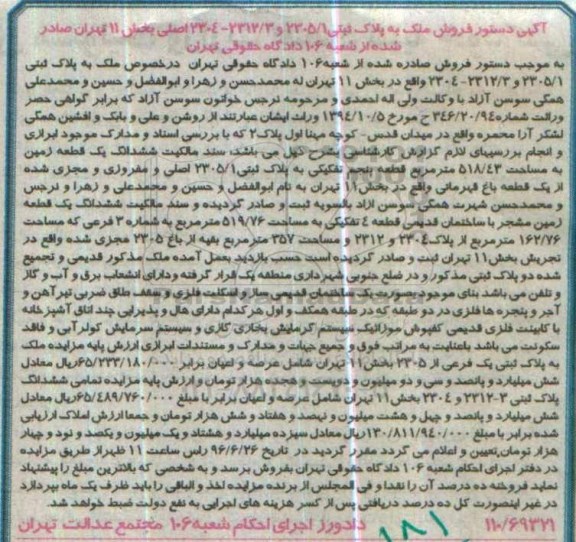 آگهی دستور فروش ملک به پلاک ثبتی ۲۳۰۵/۱ و ۲۳۱۲/۳-۲۳۰۴ اصلی بخش ۱۱ تهران صادر
شده از شعبه ۱۰۶ دادگاه حقوقی تهران
به موجب دستور فروش صادره شده از شعبه ۱۰۶ دادگاه حقوقی تهران درخصوص ملک به پلاک ثبتی
۲۳۰۵/۱ و ۲۳۱۲/۳-۲۳۰۴ واقع در بخش ۱۱ تهران له محمدحسن و زهرا و ابوالفضل و حسین و محمدعلی
همگی سوسن آزاد با وکالت ولی اله احمدی و مرحومه نرجس خواتون سوسن آزاد که برابر گواهی حصر
وراثت شماره ۳۴۶/۲۰/۹۴ ح مورخ ۱۳۹۴/۱۰/۵ وراث ایشان عبارتند از روشن و علی و بابک و افشین همگی
لشگر آرا محمره واقع در میدان قدس- کوچه مینا اول پلاک ۲ که با بررسی اسناد و مدارک موجود ابرازی
و انجام بررسیهای لازم گزارش کارشناسی بشرح ذیل می باشد، سند مالکیت ششدانگ یک قطعه زمین
به مساحت ۵۱۸/۴۳ مترمربع قطعه پنجم تفکیکی به پلاک ثبتی ۲۳۰۵/۱ اصلی و مفروزی و مجزی شده
از یک قطعه باغ قهرمانی واقع در بخش ۱۱ تهران به نام ابوالفضل و حسین و محمدعلی و زهرا و نرجس
و محمدحسن شهرت همگی سوسن آزاد بالسویه ثبت و صادر گردیده و سند مالکیت ششدانگ یک قطعه
زمین مشجر با ساختمان قدیمی قطعه ۴ تفکیکی به مساحت ۵۱۹/۷۶ مترمربع به شماره ۳ فرعی که مساحت
۱۶۲/۷۶ مترمربع از پلاک ۲۳۰۴ و ۲۳۱۲ و مساحت ۳۵۷ مترمربع بقیه از باغ ۲۳۰۵ مجزی شده واقع در
تجریش بخش ۱۱ تهران ثبت و صادر گردیده است حسب بازدید بعمل آمده ملک مذکور قدیمی و تجمیع
شده دو پلاک ثبتی مذکور و در ضلع جنوبی شهرداری منطقه یک قرار گرفته و دارای انشعاب برق و آب و گاز
و تلفن می باشد بنای موجود بصورت یک ساختمان قدیمی ساز و اسکلت فلزی و سقف طاق ضربی تیرآهن و
آجر و پنجره ها فلزی در دو طبقه که در طبقه همکف و اول هر کدام دارای هال و پذیرایی چند اتاق آشپزخانه
با کابینت فلزی قدیمی کفپوش موزائیک سیستم گرمایش بخاری گازی و سیستم سرمایش کولر آبی و فاقد
سکونت می باشد باعنایت به مراتب فوق و جمیع جهات و مدارک و مستندات ابرازی ارزش پایه مزایده ملک
به پلاک ثبتی یک فرعی از ۲۳۰۵ بخش ۱۱ تهران شامل عرصه و اعیان برابر ۶۵/۲۳۳/۱۸۰/۰۰۰ ریال معادل
شش میلیارد و پانصد و سی و دو میلیون و دویست و هجده هزار تومان و ارزش پایه مزایده تمامی ششدانگ
پلاک ثبتی ۳-۲۳۱۲ و ۲۳۰۴ بخش ۱۱ تهران شامل عرصه و اعیان برابر با مبلغ ۶۵/۴۸۹/۷۶۰/۰۰۰ ریال معادل
شش میلیارد و پانصد و چهل و هشت میلیون و نهصد و هفتاد و شش هزار تومان و جمعا ارزش املاک ارزیابی
شده برابر با مبلغ ۱۳۰/۸۱۱/۹۴۰/۰۰۰ ریال معادل سیزده میلیارد و هشتاد و یک میلیون و یکصد و نود و چهار
هزار تومان تعیین و اعلام می گردد مقرر گردید در تاریخ ۹۶/۶/۲۶ راس ساعت ۱۱ ظهر از طریق مزایده
در دفتر اجرای احکام شعبه ۱۰۶ دادگاه حقوقی تهران بفروش برسد و به شخصی که بالاترین مبلغ را پیشنهاد
نماید فروخته ده درصد آن را نقدا و فی المجلس از برنده مزایده اخذ و الباقی را باید ظرف یک ماه بپردازد
در غیر اینصورت کل ده درصد دریافتی پس از کسر هزینه های اجرایی به نفع دولت ضبط خواهد شد.
۱۱۰/۶۹۳۲۱ دادورز اجرای احکام شعبه ۱۰۶ مجتمع عدالت تهران
۱۸۱